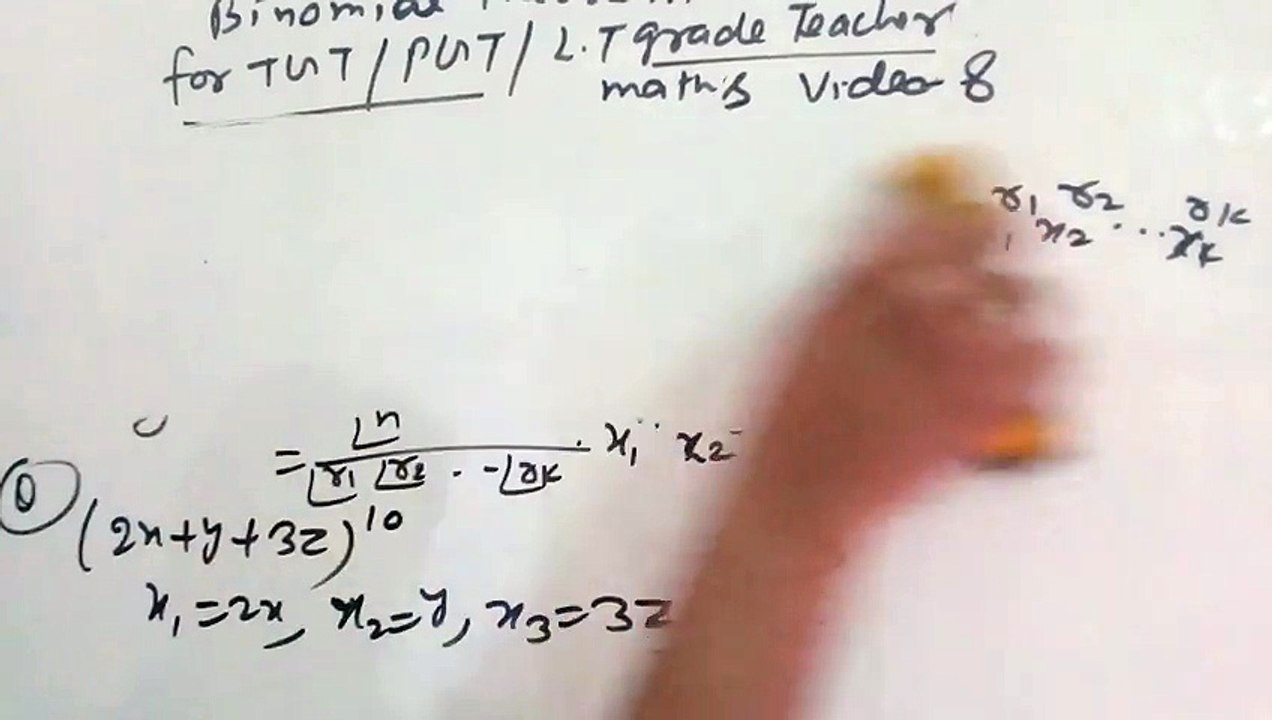 Binomial
for TGT / PGT / L.T grade Teacher
maths Video 8
r1 r2 ... rk
x2 ... xk
= ⌊n / ⌊r1 ⌊r2 . - ⌊rk . x1 x2
Q
(2x+y+3z)^10
x1 = 2x, x2 = y, x3 = 3z